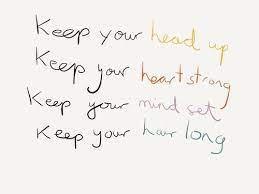 Keep your head up
Keep your heart strong
Keep your mind set
Keep your hair long